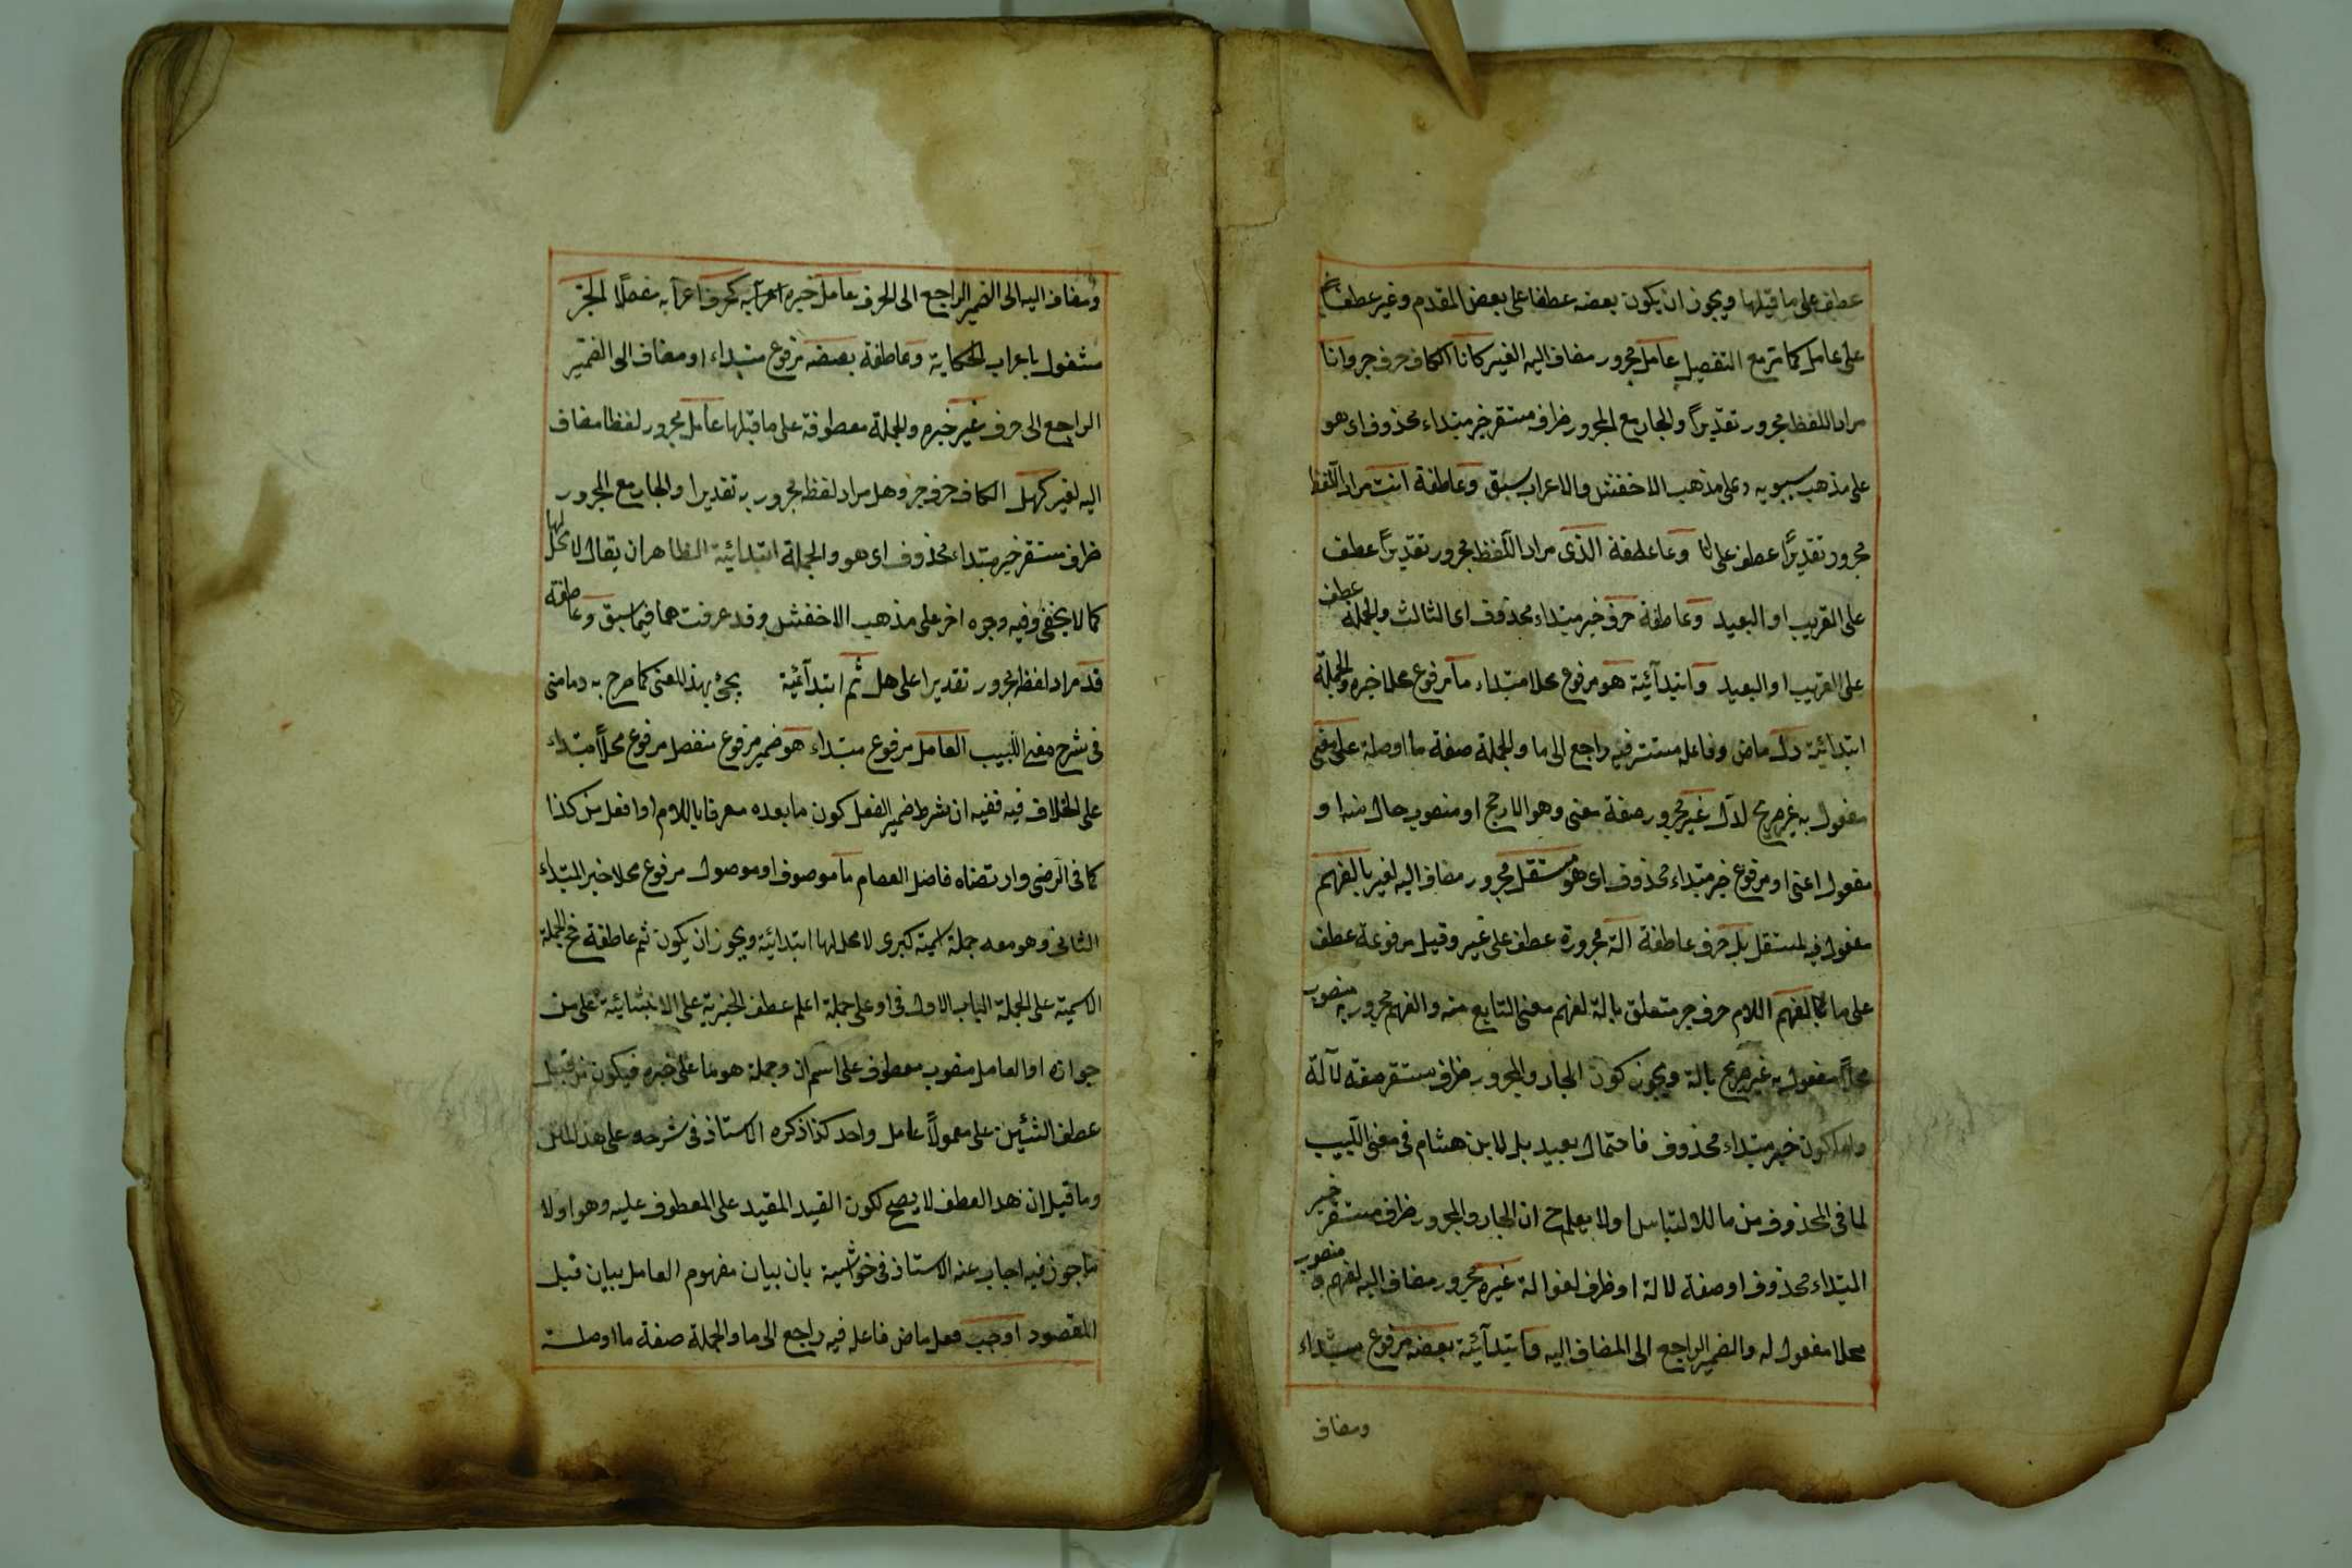 عطف على ما قبلها ويجوز ان يكون بعضه عطفا على بعض المقدم وغير عطف
على عامل كما مر مع التفصيل عامل مجرور مضاف اليه الغير كانا الكاف حرف جر وانا
مراد اللفظ مجرور تقديرا والجار مع المجرور ظرف مستقر خبر مبتداء محذوف اى هو
على مذهب سيبويه وعلى مذهب الاخفش والاعراب سبق وعاطفة انت مراد اللفظ
مجرور تقديرا عطف على انا وعاطفة الذى مراد اللفظ مجرور تقديرا عطف
على القريب او البعيد وعاطفة حرف خبر مبتداء محذوف اى الثالث والجملة عطف
على القريب او البعيد وابتدآئية هو مرفوع محلا مبتداء ما مرفوع محلا خبره والجملة
ابتدائية دل ماض وفاعله مستتر فيه راجع الى ما والجملة صفة ما اوصلة على معنى
مفعول به غير صريح لدل غير مجرور صفة معنى وهو الارجح او منصوب حال منه او
مفعول اعنى او مرفوع خبر مبتداء محذوف اى هو مستقل مجرور مضاف اليه لغير بالفهم
مفعول فيه لمستقل بل حرف عاطفة آلة مجرورة عطف على غير وقيل مرفوعة عطف
على ما لفهم اللام حرف جر متعلق بالة لفهم معنى التابع منه والفهم مجرور به منصوب
محلا مفعول به غير صريح بالة ويجوز كون الجار والمجرور ظرف مستقر صفة لآلة
واما كون خبر مبتداء محذوف فاحتمال بعيد بل لابن هشام فى مغنى اللبيب
لما فى المحذوف من ما للالتباس اولا يعلم ح ان الجار والمجرور ظرف مستقر خبر
المبتداء محذوف او صفة لالة او ظرف لغو الة غيره مجرور مضاف اليه لفهم و منصوب
محلا مفعول له والضمير الراجع الى المضاف اليه وابتدآئية بعضه مرفوع مبتداء
ومضاف
ومضاف اليه الى الضمير الراجع الى الحرف عامل خبره اعرابه كحرف اعرابه مفصلا لجز
مشغول باعراب الحكاية وعاطفة بعضه مرفوع مبتداء او مضاف الى الضمير
الراجع الى حرف غير خبره والجملة معطوفة على ما قبلها عامل مجرور لفظا مضاف
اليه لغير كهل الكاف حرف جر وهل مراد لفظه مجرور به تقديرا والجار مع المجرور
ظرف مستقر خبر مبتداء محذوف اى هو والجملة ابتدائية الظاهر ان يقال لا محل لها
كما لا يخفى وفيه وجوه اخر على مذهب الاخفش وقد عرفت هما فيما سبق وعاطفة
قد مراد لفظه مجرور تقديرا على هل ثم ابتدآئية يجئ بهذ المعنى كما صرح به دمامنى
فى شرح مغنى اللبيب العامل مرفوع مبتداء هو ضمير مرفوع منفصل مرفوع محلا مبتداء
على الخلاف فيه ففيه ان شرط ضمير الفصل كون ما بعده معرفا باللام او افعل من كذا
كما فى الرضى وارتضاه فاضل العصام ما موصوف او موصول مرفوع محلا خبر المبتداء
الثانى وهو معه جملة اسمية كبرى لا محل لها ابتدائية ويجوز ان يكون ثم عاطفة فح الجملة
الاسمية على الجملة الباب الاول فى او على جملة اعلم عطف الخبرية على الانشائية على من
جوازه او العامل منصوب معطوف على اسم ان وجملة هو ما على خبره فيكون من قبيل
عطف الشئين على معمولا عامل واحد كذا ذكره الاستاذ فى شرحه على هذ المتن
وما قيل ان هذا العطف لا يصح لكون القيد المقيد على المعطوف عليه وهو اولا
ما جوز فيه اجاب عنه الاستاذ فى حواشيه بان بيان مفهوم العامل بيان قبل
المقصود اوجب فعل ماض فاعله فيه راجع الى ما والجملة صفة ما اوصلة